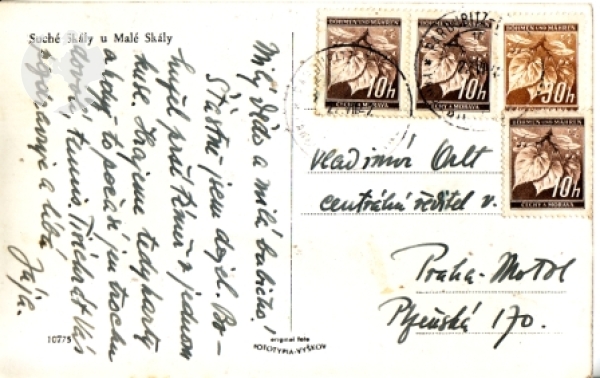 Suché Skály u Malé Skály
Můj dědo a milá babičko!
Šťastně jsem dojel. Bo-
hužel prší téměř v jednom
kuse. Hrajeme tedy karty
a když to počasí jen trochu
dovolí, tennis. Třikrát Vás
pozdravuje a líbá
Jája.
10775
original foto
FOTOTYPIA-VYŠKOV
BÖHMEN UND MÄHREN
10h
ČECHY A MORAVA
BÖHMEN UND MÄHREN
10h
ČECHY A MORAVA
BÖHMEN UND MÄHREN
30h
ČECHY A MORAVA
BÖHMEN UND MÄHREN
10h
ČECHY A MORAVA
PARDUBITZ
Vladimír
centrální ředitel v.
Praha-Motol
Plzeňská 170.